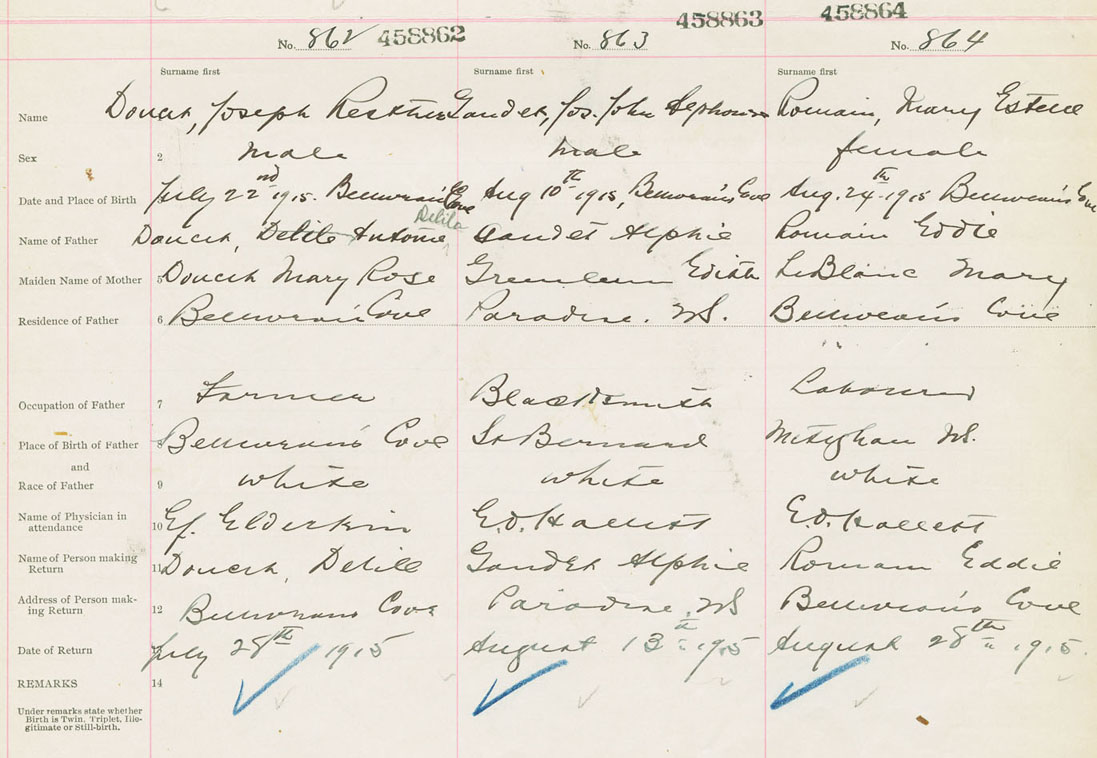 458862 458863 458864
No. 862 No. 863 No. 864
Surname first Surname first Surname first
Name Doucet, Joseph Gaudet, Jos. John Alphonse Romain, Mary Estelle
Sex 2 male male female
Date and Place of Birth July 22nd 1915. Cove Aug 10th 1915, Cove Aug. 24th 1915 Cove
Delilo
Name of Father Doucet, Antoine Gaudet Alphie Romain Eddie
Maiden Name of Mother 5 Doucet Mary Rose Edith LeBlanc Mary
Residence of Father 6 Cove Paradise. N.S. Cove
Occupation of Father 7 Farmer Blacksmith Labourer
Place of Birth of Father 8 Cove St Bernard Meteghan N.S.
and
Race of Father 9 white white white
Name of Physician in
attendance 10 Elderkin E.D. Hallett E.D. Hallett
Name of Person making
Return 11 Doucet, Gaudet Alphie Romain Eddie
Address of Person mak-
ing Return 12 Cove Paradise, N.S. Cove
Date of Return July 28th 1915 August 13th 1915 August 28th 1915.
REMARKS 14
Under remarks state whether
Birth is Twin, Triplet, Ille-
gitimate or Still-birth.